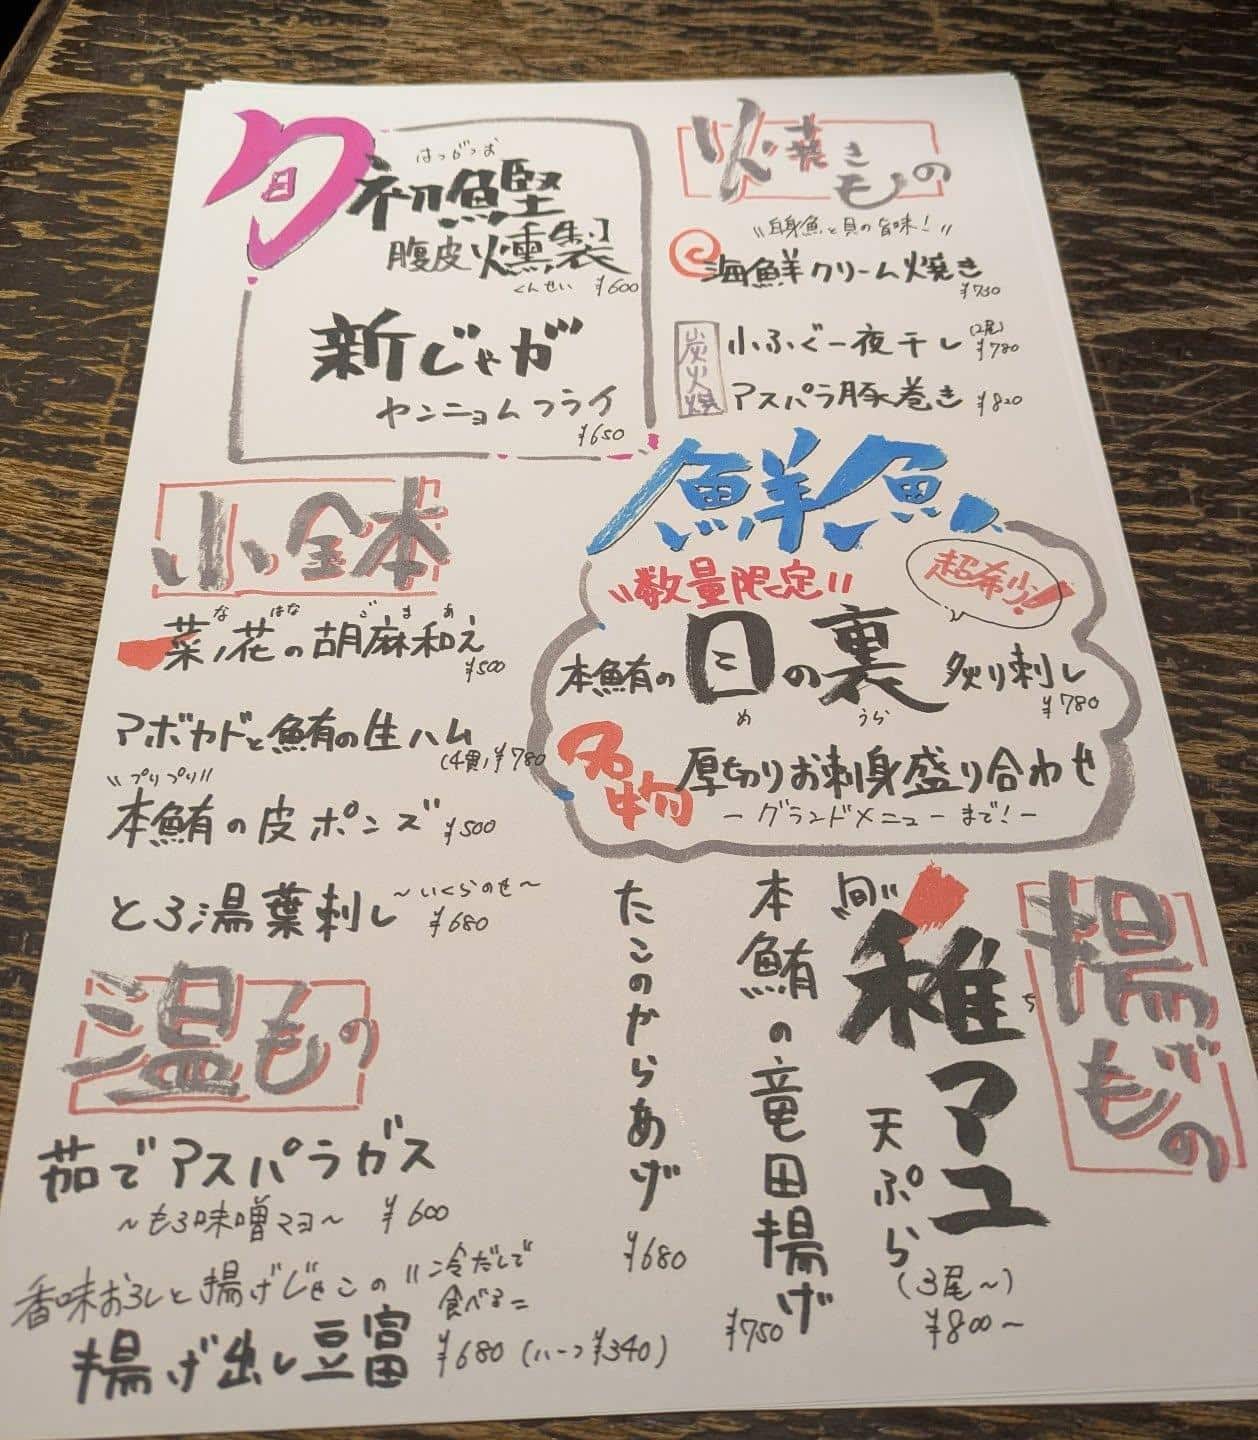 旬
はつがつお
初鰹
腹皮燻製
くんせい ¥600
新じゃが
ヤンニョムフライ
¥650
焼きもの
"白身魚と貝の旨味!"
海鮮クリーム焼き
¥730
炭火焼
小ふぐ一夜干し (2尾) ¥780
アスパラ豚巻き ¥820
小鉢
な はな ごまあ
菜ノ花の胡麻和え
¥500
アボカドと鮪の生ハム
(4貫) ¥780
"プリプリ"
本鮪の皮ポンズ ¥500
とろ湯葉刺し ~いくらのせ~
¥680
鮮魚
"数量限定"
超希少!
本鮪の目の裏 炙り刺し
め うら ¥780
名物
厚切りお刺身盛り合わせ
ーグランドメニューまで!ー
揚げもの
旬
稚アユ
ち
天ぷら
(3尾~)
¥800~
本鮪の竜田揚げ
¥750
たこのからあげ
¥680
温もの
茹でアスパラガス
~もろ味噌マヨ~ ¥600
香味おろしと揚げじゃこの"冷だしで
食べる"
揚げ出し豆富 ¥680 (ハーフ¥340)